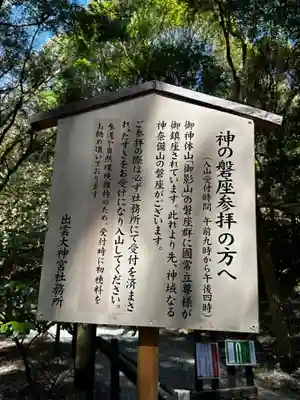 神の磐座参拝の方へ
(入山受付時間、午前九時から午後四時)
御神体山「御影山」の磐座群に國常立尊様が
御鎮座されています。此れより先、神域なる
神奈備山の磐座がございます。
ご参拝の際は必ず社務所にて受付を済まさ
れ、たすきをお受けになり入山してください。
参道や自然環境維持のため、受付時に初穂料を
お納め頂いております
出雲大神宮社務所